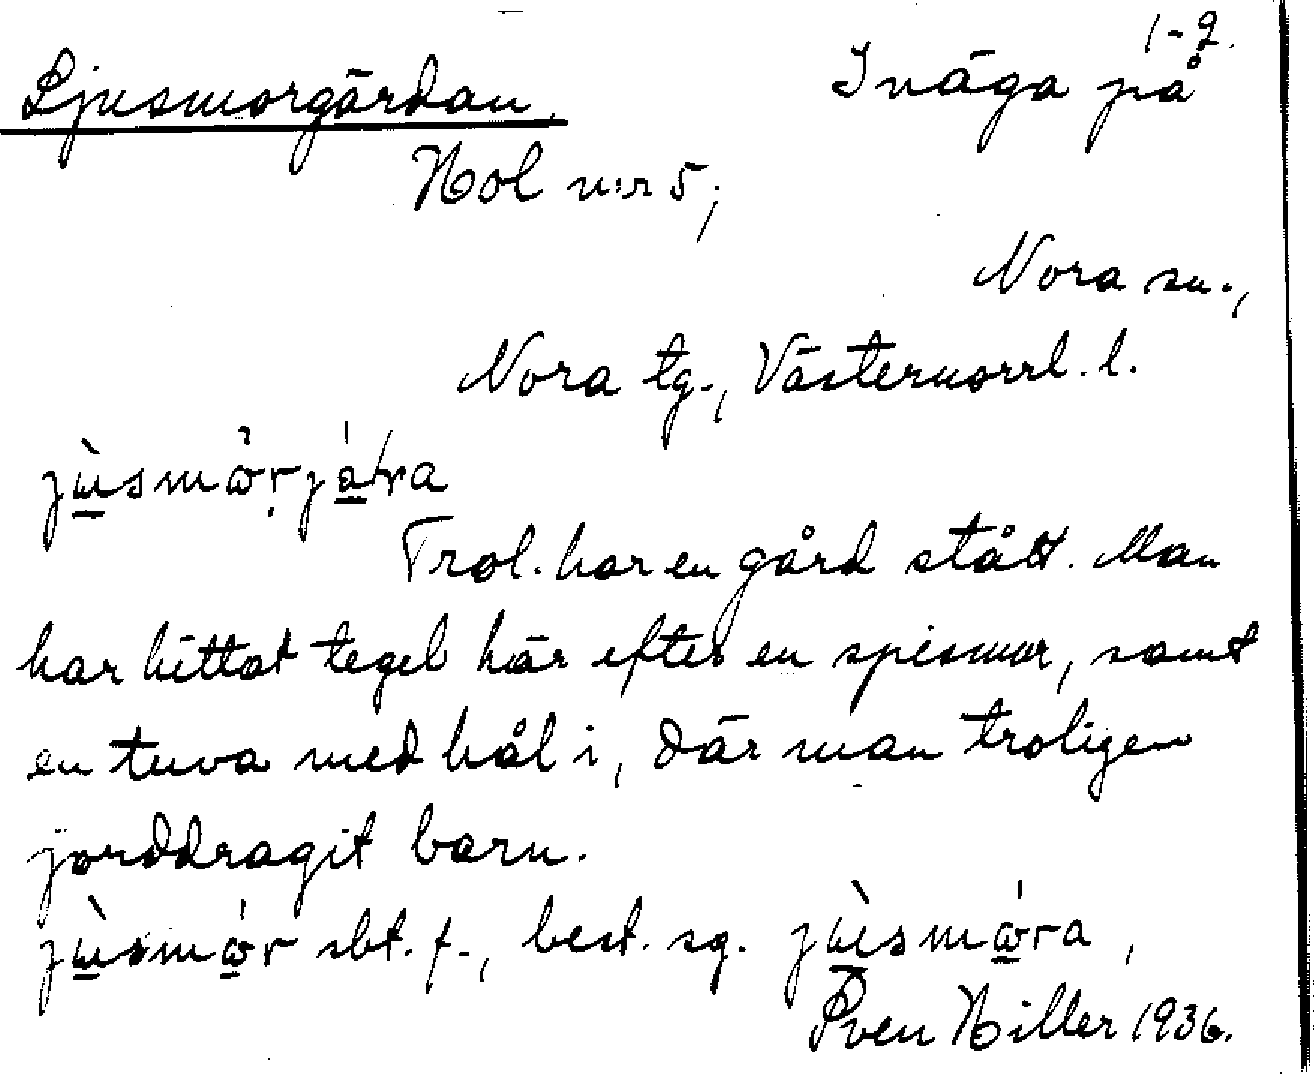 1-2.
Ljusmorgärdan. Inäga på
Hol n:r 5;
Nora sn.,
Nora tg., Västernorrl. l.
Trol. har en gård stått. Man
har hittat tegel här efter en spismur, samt
en tuva med hål i, där man troligen
jorddragit barn.
sbt. f., best. sg.
Sven Hiller 1936.